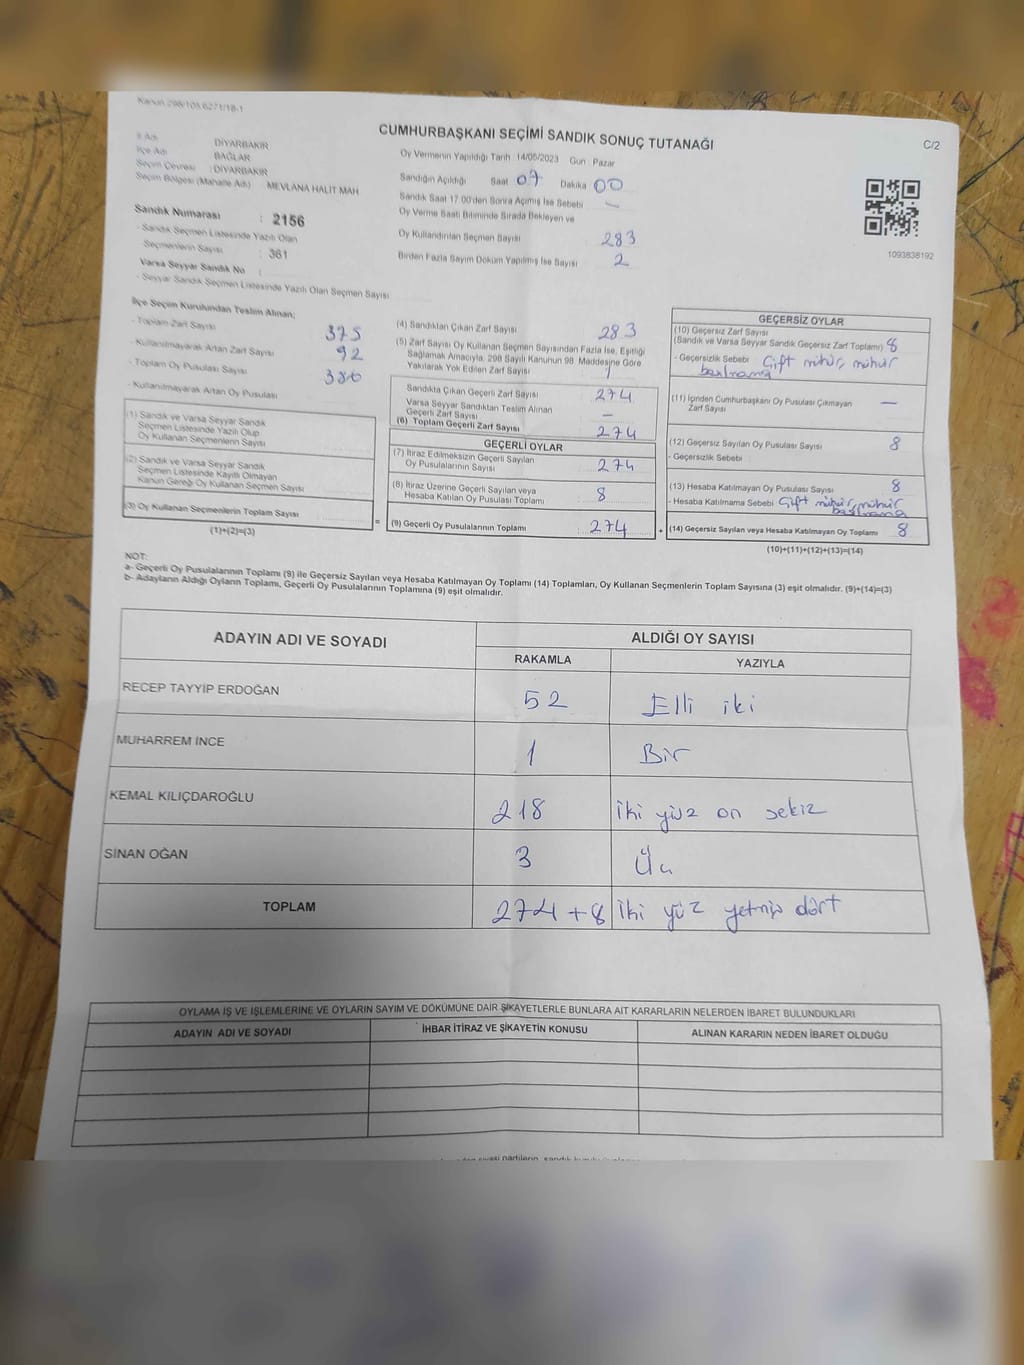 Kanun 298/105,6271/18-1
CUMHURBAŞKANI SEÇİMİ SANDIK SONUÇ TUTANAĞI
C/2
İl Adı : DİYARBAKIR
İlçe Adı : BAĞLAR
Seçim Çevresi : DİYARBAKIR
Seçim Bölgesi (Mahalle Adı) : MEVLANA HALİT MAH
Sandık Numarası : 2156
- Sandık Seçmen Listesinde Yazılı Olan
Seçmenlerin Sayısı : 361
Varsa Seyyar Sandık No :
- Seyyar Sandık Seçmen Listesinde Yazılı Olan Seçmen Sayısı
Oy Vermenin Yapıldığı Tarih :14/05/2023 Gün : Pazar
Sandığın Açıldığı Saat 07 Dakika 00
Sandık Saat 17:00'den Sonra Açılmış İse Sebebi –
Oy Verme Saati Bitiminde Sırada Bekleyen ve
Oy Kullandırılan Seçmen Sayısı 283
Birden Fazla Sayım Döküm Yapılmış İse Sayısı 2
1093838192
İlçe Seçim Kurulundan Teslim Alınan;
- Toplam Zarf Sayısı 375
- Kullanılmayarak Artan Zarf Sayısı 92
- Toplam Oy Pusulası Sayısı 380
- Kullanılmayarak Artan Oy Pusulası
(1) Sandık ve Varsa Seyyar Sandık
Seçmen Listesinde Yazılı Olup
Oy Kullanan Seçmenlerin Sayısı
(2) Sandık ve Varsa Seyyar Sandık
Seçmen Listesinde Kayıtlı Olmayan
Kanun Gereği Oy Kullanan Seçmen Sayısı
(3) Oy Kullanan Seçmenlerin Toplam Sayısı
(1)+(2)=(3)
(4) Sandıktan Çıkan Zarf Sayısı 283
(5) Zarf Sayısı Oy Kullanan Seçmen Sayısından Fazla İse, Eşitliği
Sağlamak Amacıyla, 298 Sayılı Kanunun 98. Maddesine Göre
Yakılarak Yok Edilen Zarf Sayısı 1
Sandıkta Çıkan Geçerli Zarf Sayısı 274
Varsa Seyyar Sandıktan Teslim Alınan
Geçerli Zarf Sayısı –
(6) Toplam Geçerli Zarf Sayısı 274
GEÇERLİ OYLAR
(7) İtiraz Edilmeksizin Geçerli Sayılan
Oy Pusulalarının Sayısı 274
(8) İtiraz Üzerine Geçerli Sayılan veya
Hesaba Katılan Oy Pusulası Toplamı 8
= (9) Geçerli Oy Pusulalarının Toplamı 274 +
GEÇERSİZ OYLAR
(10) Geçersiz Zarf Sayısı
(Sandık ve Varsa Seyyar Sandık Geçersiz Zarf Toplamı) 8
- Geçersizlik Sebebi Çift mühür, mühür
basılmama
(11) İçinden Cumhurbaşkanı Oy Pusulası Çıkmayan
Zarf Sayısı –
(12) Geçersiz Sayılan Oy Pusulası Sayısı 8
- Geçersizlik Sebebi
(13) Hesaba Katılmayan Oy Pusulası Sayısı 8
- Hesaba Katılmama Sebebi Çift mühür, mühür
basılmama
(14) Geçersiz Sayılan veya Hesaba Katılmayan Oy Toplamı 8
(10)+(11)+(12)+(13)=(14)
NOT:
a- Geçerli Oy Pusulalarının Toplamı (9) ile Geçersiz Sayılan veya Hesaba Katılmayan Oy Toplamı (14) Toplamları, Oy Kullanan Seçmenlerin Toplam Sayısına (3) eşit olmalıdır. (9)+(14)=(3)
b- Adayların Aldığı Oyların Toplamı, Geçerli Oy Pusulalarının Toplamına (9) eşit olmalıdır.
ADAYIN ADI VE SOYADI ALDIĞI OY SAYISI
RAKAMLA YAZIYLA
RECEP TAYYİP ERDOĞAN 52 Elli iki
MUHARREM İNCE 1 Bir
KEMAL KILIÇDAROĞLU 218 İki yüz on sekiz
SİNAN OĞAN 3 Üç
TOPLAM 274 + 8 İki yüz yetmiş dört
OYLAMA İŞ VE İŞLEMLERİNE VE OYLARIN SAYIM VE DÖKÜMÜNE DAİR ŞİKAYETLERLE BUNLARA AİT KARARLARIN NELERDEN İBARET BULUNDUKLARI
ADAYIN ADI VE SOYADI İHBAR İTİRAZ VE ŞİKAYETİN KONUSU ALINAN KARARIN NEDEN İBARET OLDUĞU